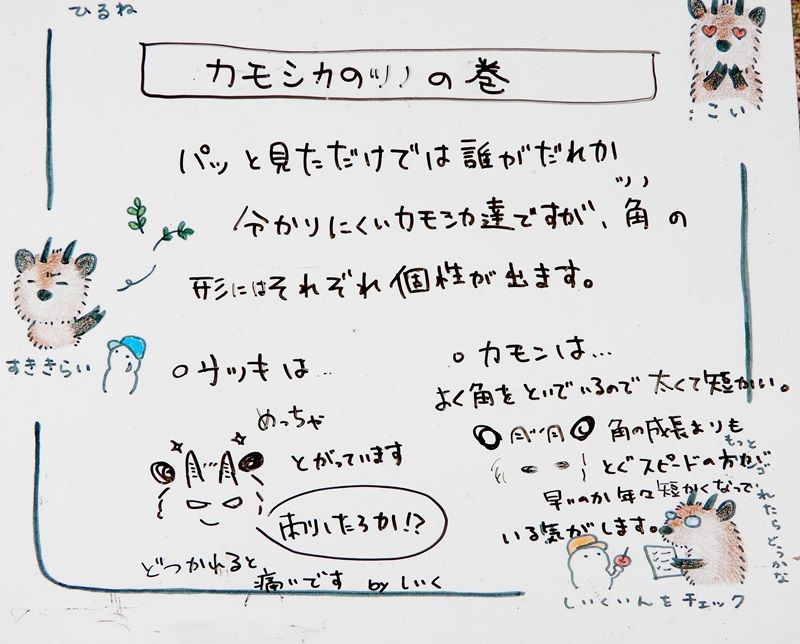 ひるね
カモシカのツノの巻
こい
パッと見ただけでは誰がだれか
分かりにくいカモシカ達ですが、角の
ツノ
形にはそれぞれ個性が出ます。
すききらい
○サツキは…
めっちゃ
とがっています
刺したろか!?
どつかれると、
痛いです byしいく
○カモンは…
よく角をといでいるので太くて短かい。
角の成長よりも
とぐスピードの方が
早いのか年々短かくなって
いる気がします。
もっと
れたらどうかな
しいくいんをチェック